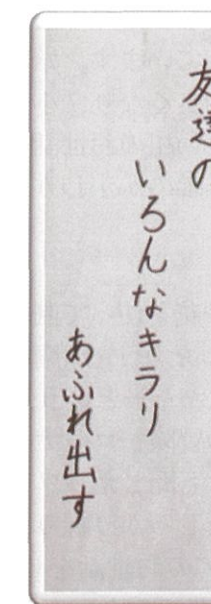 友達の
いろんなキラリ
あふれ出す